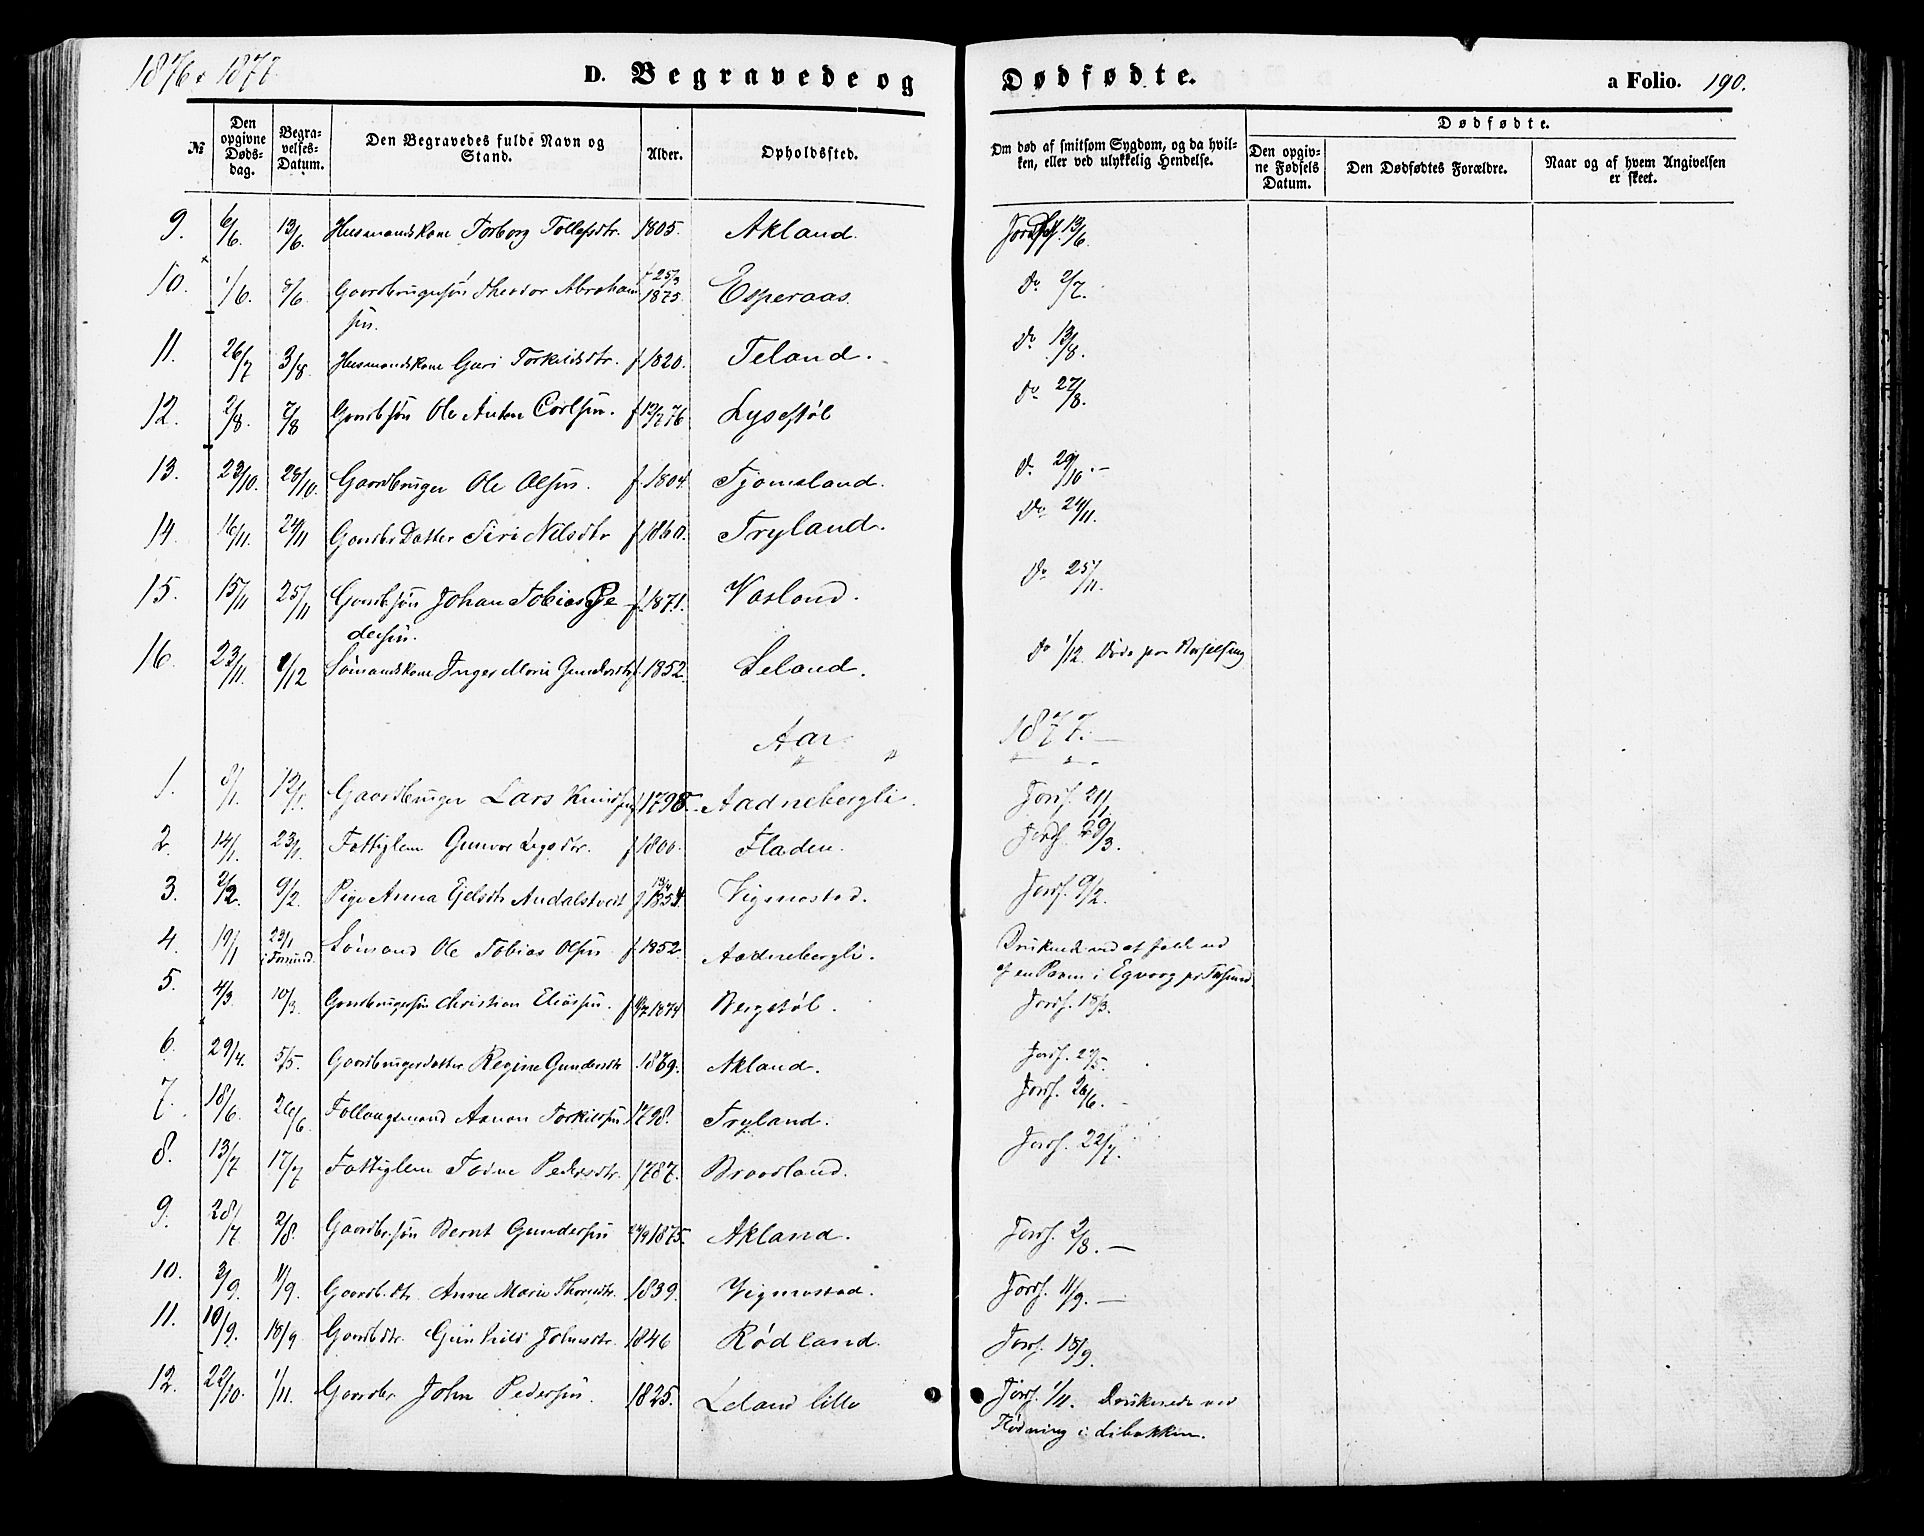 1876 & 1877
D. Begravede og Dødfødte. a Folio. 190.
№ Den opgivne Døds-dag. Begra-velses-Datum. Den Begravedes fulde Navn og Stand. Alder. Opholdssted. Om død af smitsom Sygdom, og da hvil-ken, eller ved ulykkelig Hendelse. Dødfødte. Den opgiv-ne Fødsels Datum. Den Dødfødtes Forældre. Naar og af hvem Angivelsen er skeet.
9. 6/6. 13/6. Husmandskone Torborg Tollefsdtr. 1805. Akland. Jordf. 13/6.
10. 1/6. 8/6. Gaardbrugersön Theodor Abraham f 25/3 1875. Esperaas. Do 2/7.
sen.
11. 26/7 3/8. Husmandskone Guri Torkildsdtr. f 1820. Teland. Do 13/8.
12. 2/8. 7/8 Gaardb sön Ole Anton Carlsen. f 12/7 76. Lysestøl Do 27/8.
13. 23/10. 28/10. Gaardbruger Ole Olsen. f. 1804. Tjomsland. Do 29/10.-
14. 16/11. 24/11 Gaardbr Datter Siri Nilsdtr f 1860. Tryland. Do 24/11.
15. 15/11 25/11 Gaardb sön Johan Tobias Pe- f. 1871. Vasland. Do 25/11.
dersen.
16. 23/11. 1/12 Sömandskone Inger Marie Gundersdtr f. 1852. Leland. Do 1/12. Döde paa Barselseng
Aar 1877.
1. 8/1. 12/1. Gaardbruger Lars Knudsen f 1798. Aadnebergli. Jordf. 21/1
2. 14/1. 23/1. Fattiglem Gunvor f 1800. Fladen. Jordf. 29/3.
3. 2/2. 9/2. Pige Anna Ejelsdtr Audalstvedt f. 1834. Vigmostad. Jordf. 9/2.
4. 19/1 23/1 i Farsund. Sömand Ole Tobias Olsen f. 1852. Aadnebergli. Druknede ved at falde ud
af en Pram i Egvaag pr Farsund
5. 4/3. 10/3. Gaardbrugersön Christian Eliassen. f 1874 Bergstøl. Jordf. 18/3.
6. 29/4. 5/5. Gaardbrugerdatter Regine Gundersdtr 1869. Akland. Jordf. 27/5.
7. 18/6. 26/6 Follaugsmand Aanon Torkildsen 1798. Tryland. Jordf. 26/6.
8. 13/7 17/7 Fattiglem Todne Pedersdtr. 1787. Braadland. Jordf. 22/7.
9. 28/7. 2/8. Gaardbr.sön Bernt Gundersen 1875. Akland. Jordf. 2/8.-
10. 3/9. 11/9. Gaardb.dtr. Anne Marie Thorsdtr. 1839. Vigmostad. Jordf. 11/9.-
11. 10/9. 18/9 Gaardb dtr. Gunhild Johnsdtr. 1846 Rødland. Jordf. 18/9.
12. 22/10. 1/11. Gaardbr John Pedersen. 1825. Leland lille Jordf. 1/11. Druknede ved
Flødning i